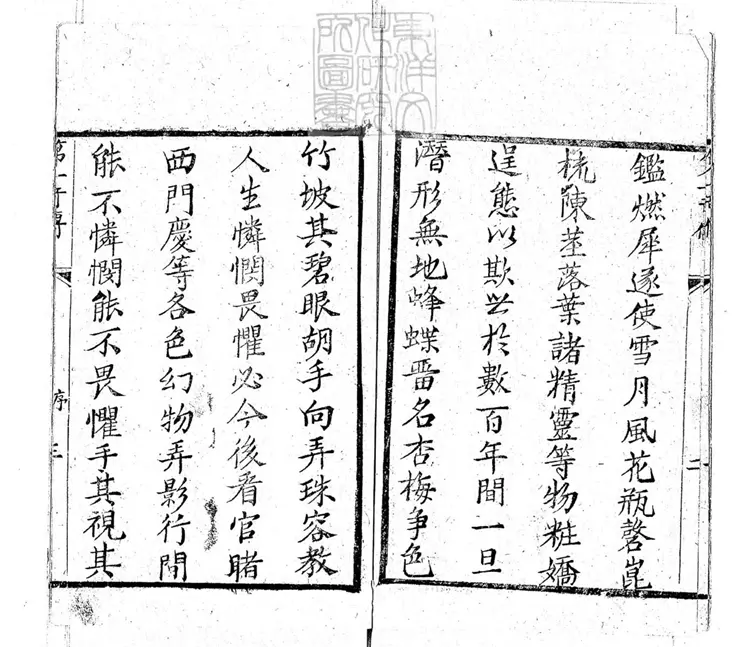 東洋文
化研究
所圖書
第一奇書 二
鑑燃犀遂使雪月風花瓶罄篦
梳陳莖落葉諸精靈等物粧嬌
逞態以欺世於數百年間一旦
潛形無地蜂蝶畱名杏梅争色
竹坡其碧眼胡乎向弄珠客教
人生憐憫畏懼心今後看官睹
西門慶等各色幻物弄影行間
能不憐憫能不畏懼乎其視其
第一奇書 序 三